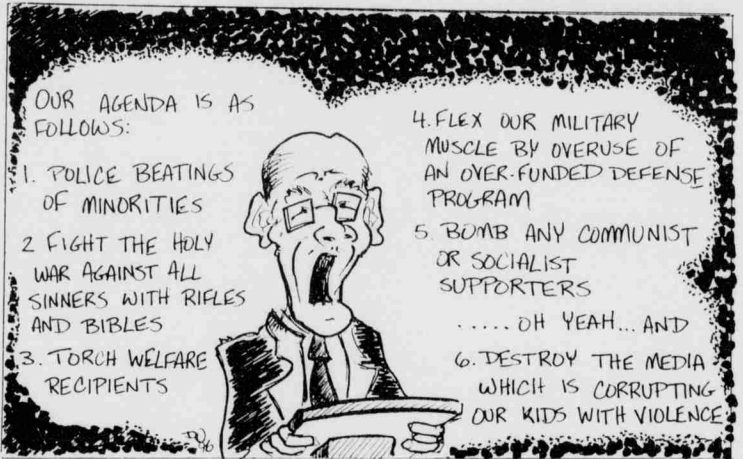 OUR AGENDA IS AS
FOLLOWS:
1. POLICE BEATINGS
OF MINORITIES
2 FIGHT THE HOLY
WAR AGAINST ALL
SINNERS WITH RIFLES
AND BIBLES
3. TORCH WELFARE
RECIPIENTS
4. FLEX OUR MILITARY
MUSCLE BY OVERUSE OF
AN OVER-FUNDED DEFENSE
PROGRAM
5. BOMB ANY COMMUNIST
OR SOCIALIST
SUPPORTERS
..... OH YEAH... AND
6. DESTROY THE MEDIA
WHICH IS CORRUPTING
OUR KIDS WITH VIOLENCE